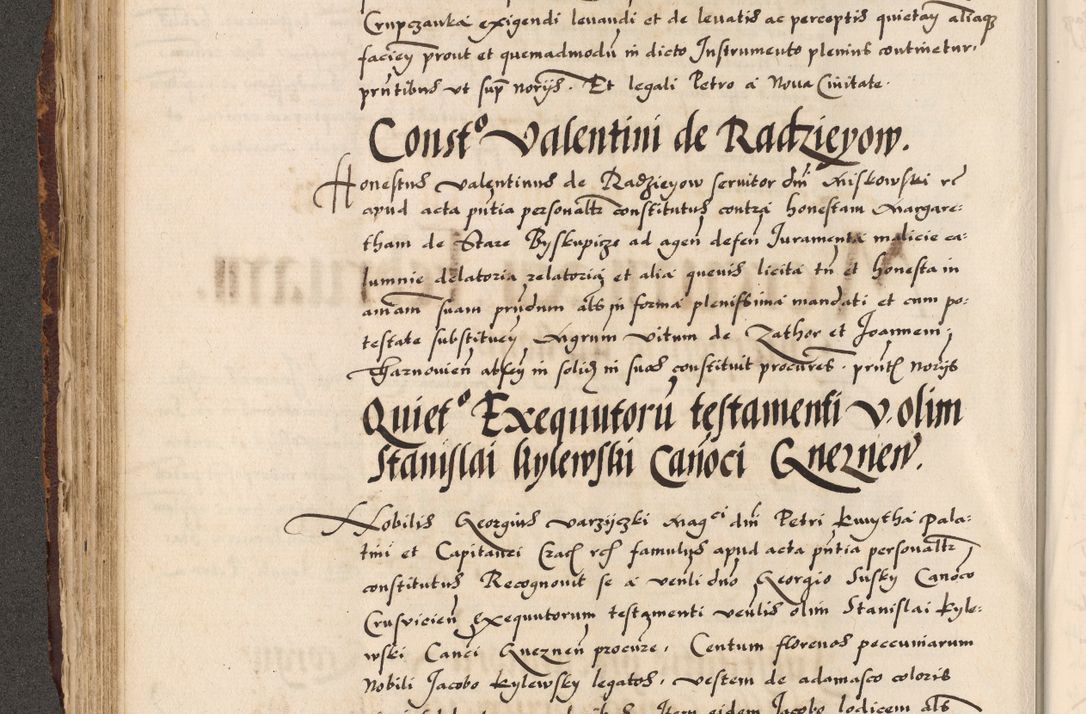 Crupczanka exigendi levandi et de levatis ac perceptis quietan̄ aliaq̄
facien̄ prout et quemadmodū in dicto Instrumento plenius continetur.
pn̄tibus ut sup̄ norijs. Et legali Petro a Nova Civitate.
Constᵒ Valentini de Radzieyow.
Honestus Valentinus de Radzieyow servitor dn̄i Miskowski rc
apud acta pn̄tia personalr̄ constitutus contra honestam Margare:
tham de Stare Byskupicze ad agen̄ defen̄ Juramenta malicie ca:
lumnie delatoria relatoria et alia quevis licita tn̄ et honesta in
aīam suam prn̄dum als in forma plenissima mandati et cum po:
testate substituen̄ Mgrum Vitum de Zathor et Joannem
Tharnovien̄ absen̄ in solid̄ in suos constituit procures. pn̄tt norijs
Quietᵒ Exequutorū testamenti v. olim
Stanislai kylewski Can̄oci Gneznen̄.
Nobilis Georgius Varzijczki Magᶜⁱ dn̄i Petri kmytha Pala:
tini et Capitanei Crac̄ rc̄ famulus apud acta pn̄tia personalr̄
constitutus Recognovit se a ven̄li dn̄o Georgio Susky Canōco
Crusvicien̄ Exequutorum testamenti ven̄lis olim Stanislai kyle:
wski Canc̄i Gneznen̄ procure. Centum florenos peccuniarum
Nobili Jacobo kylewsky legatos. Vestem de adamasco coloris
Item eidem Jacobo lodicem als